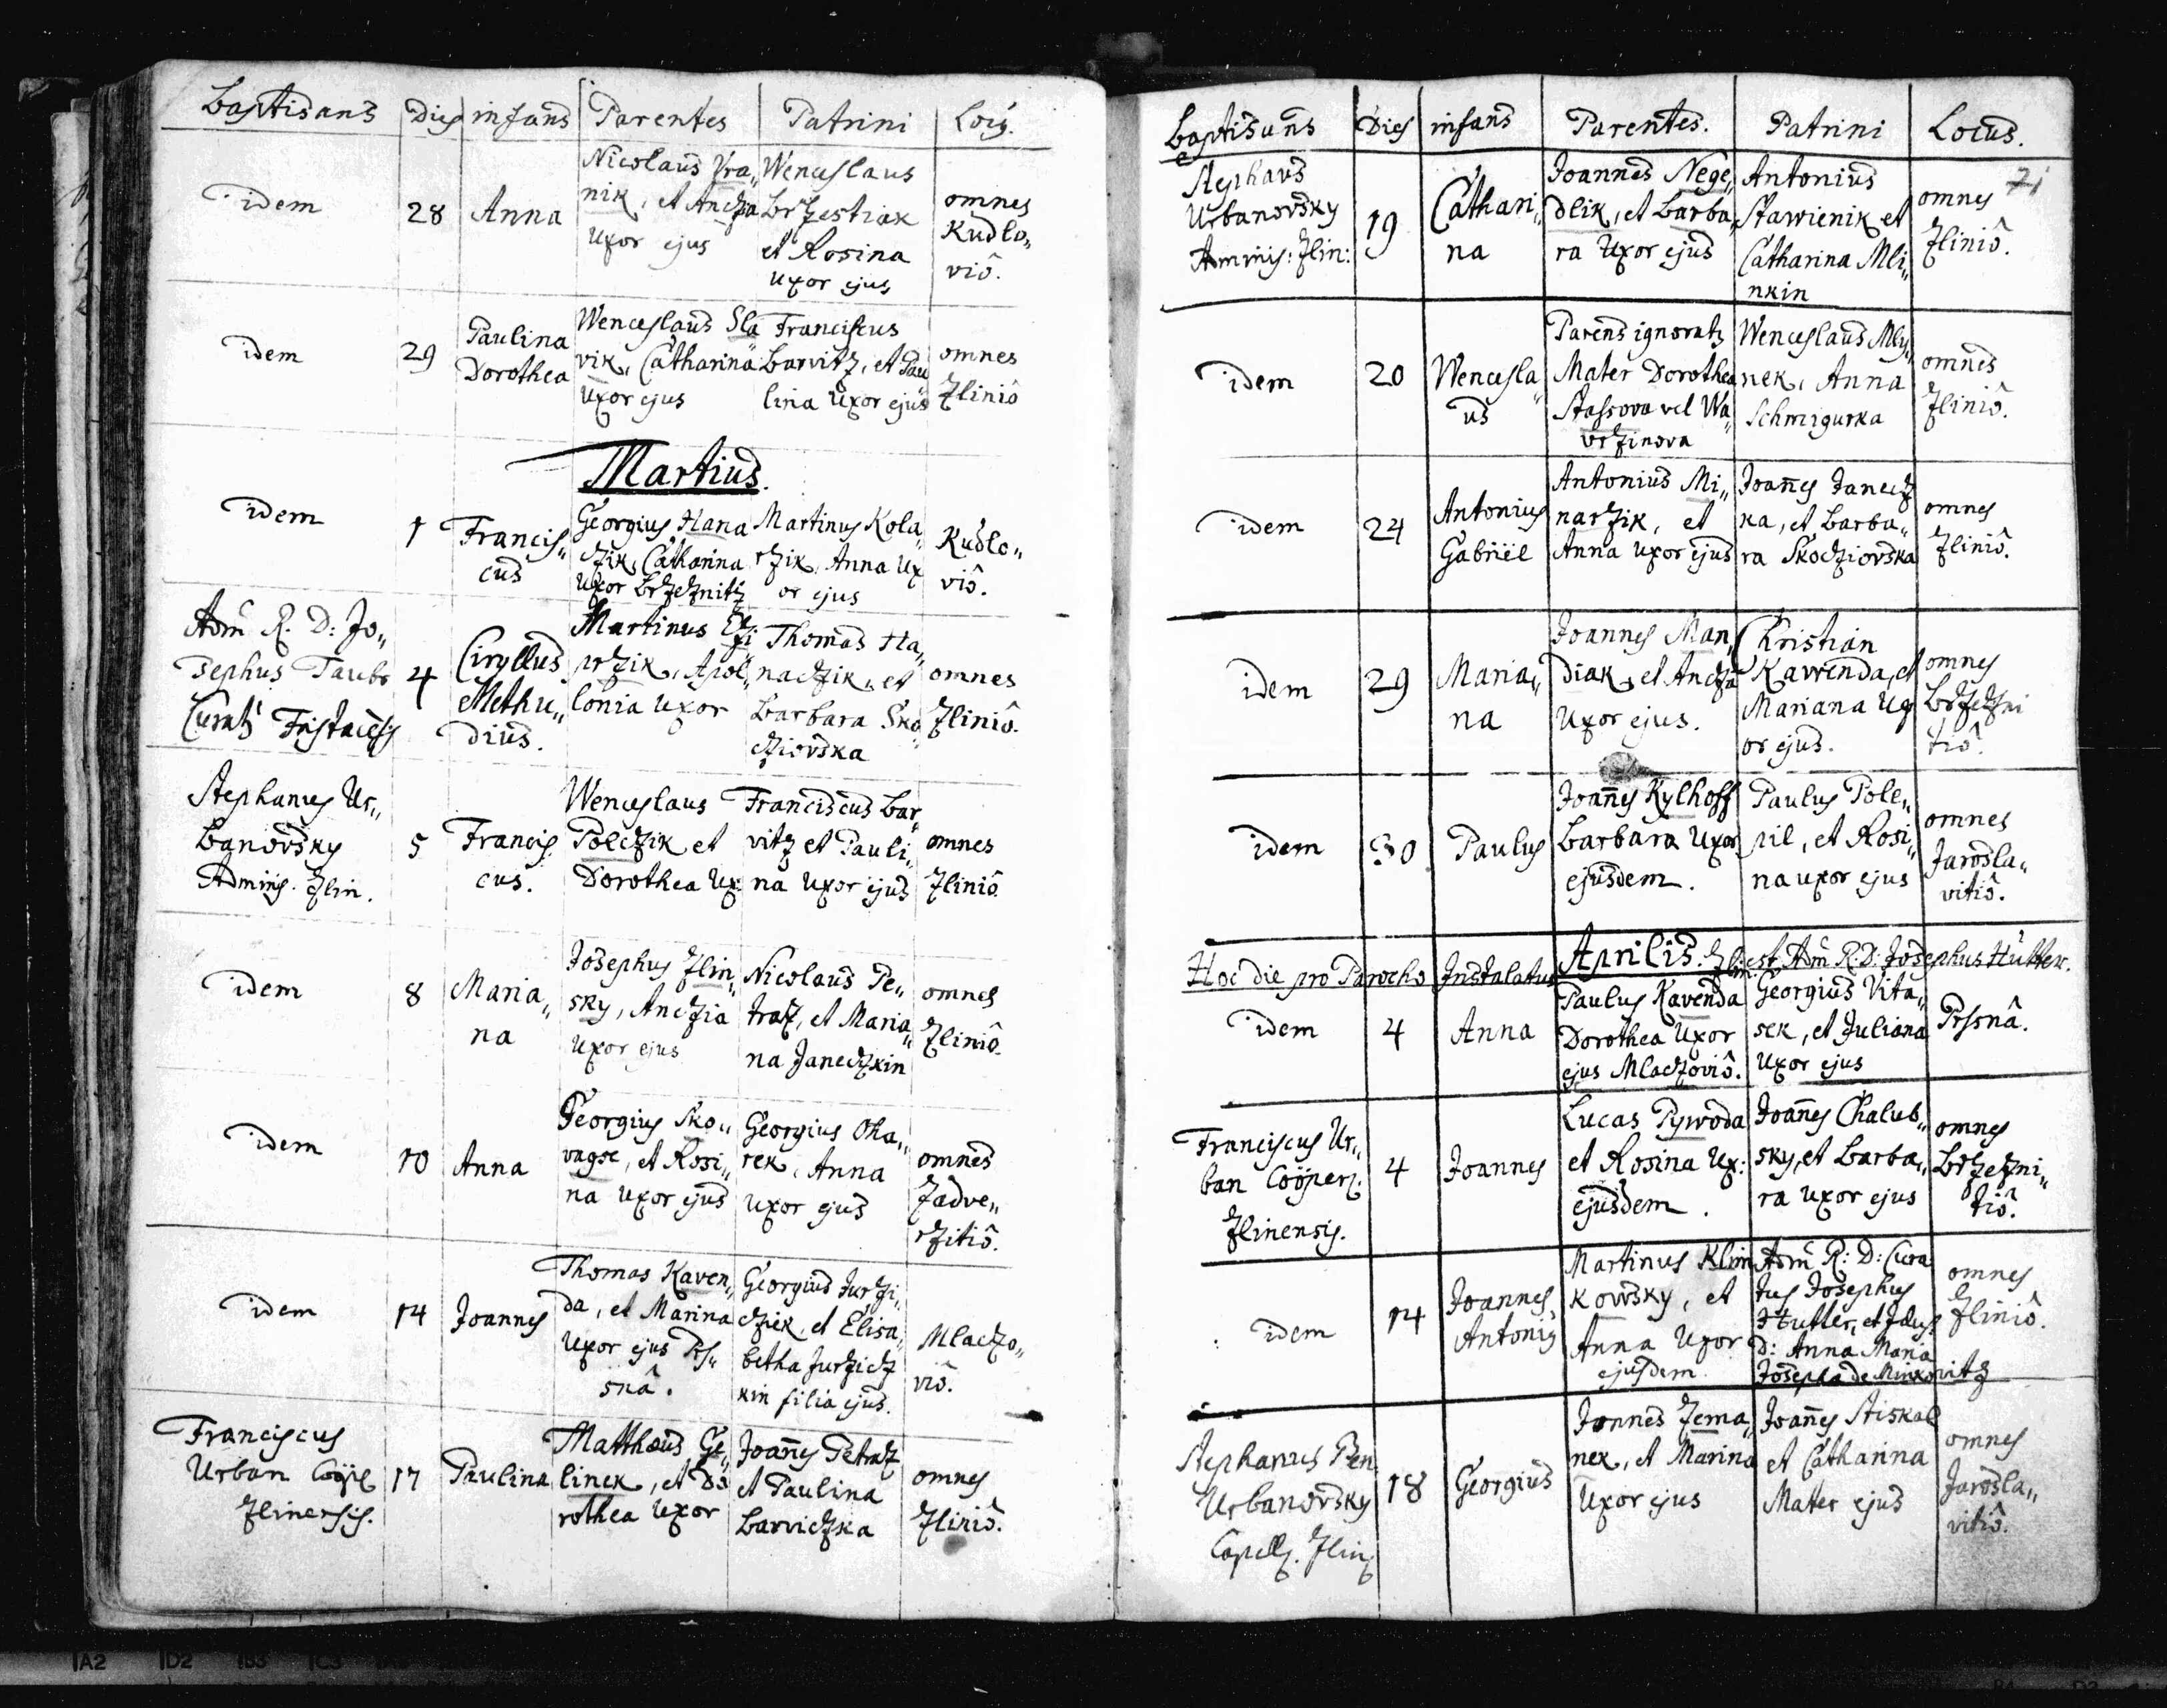 Baptisans Dies infans Parentes Patrini Locus.
idem 28 Anna
Nicolaus Vra„
nik, et Anczia
Uxor ejus
Wenceslaus
Brzestiak
et Rosina
Uxor ejus
omnes
Kudlo„
viô.
idem 29
Paulina
Dorothea
Wenceslaus Sla
vik„ Catharina
Uxor ejus
Franciscus
Barvitz, et Pau
lina Uxor ejus
omnes
Zliniô
Martius.
idem 1
Francis„
cus
Georgius Hana
czik, Catharina
Uxor Brzeznitz
Martinus Kola„
rzik, Anna Ux
or ejus
Kudlo„
viô.
Adm R. D: Jo„
sephus Taubr
Curatus
4
Ciryllus
Methu„
dius.
Martinus
przik, Apol„
lonia Uxor
Thomas Ha„
naczik, et
Barbara Sko
cziovska
omnes
Zliniô.
Stephanus Ur„
banovsky
Adminis. Zlin.
5
Francis
cus.
Wenceslaus
Polczik et
Dorothea Ux:
Franciscus Bar„
vitz et Pauli„
na Uxor ejus
omnes
Zliniô.
idem 8
Maria„
na
Josephus Zlin„
sky, Anczia
Uxor ejus
Nicolaus Pe„
tratz, et Maria„
na Janeczkin
omnes
Zliniô.
idem 10 Anna
Georgius Sko„
vagse, et Rosi„
na Uxor ejus
Georgius Oha„
rek, Anna
Uxor ejus
omnes
Zadve„
rzitiô.
idem 14 Joannes
Thomas Kaven„
da, et Marina
Uxor ejus Prs„
snâ.
Georgius Jurzi„
cziek, et Elisa„
betha Jurzicz
kin filia ejus.
Mlaczo„
viô.
Franciscus
Urban Coöp
Zlinensis.
17 Paulina
Matthæus Ge„
linek, et Do
rothea Uxor
Joañes Petratz
et Paulina
Barviczka
omnes
Zliniô.
Baptisans Dies infans Parentes. Patrini Locus.
71
Stephans
Urbanovsky
Adminis: Zlin:
19
Cathari„
na
Joannes Nege„
dlik, et Barba„
ra Uxor ejus
Antonius
Stawienik et
Catharina Mli„
nkin
omnes
Zliniô.
idem 20
Wencesla„
us
Parens ignoratus
Mater Dorothea
Stassova vel Wa„
vrzinova
Wenceslaus Mly„
nek, Anna
Schmigurka
omnes
Zliniô.
idem 24
Antonius
Gabriel
Antonius Mi„
narzik, et
Anna Uxor ejus
Joañes Janecz
ka, et Barba„
ra Skocziovska
omnes
Zliniô.
idem 29
Maria„
na
Joannes Man„
diak, et Anczia
Uxor ejus.
Kristian
Kawenda, et
Mariana Ux
or ejus.
omnes
Brzezni
tiô.
idem 30 Paulus
Joañes Kylhoff
Barbara Uxor
ejusdem.
Paulus Pole„
pil, et Rosi„
na uxor ejus
omnes
Jarosla„
vitiô.
Aprilis.
Hoc die pro Parocho Instalatus Zlin: est Adm R: D: Josephus Hutter.
idem 4 Anna
Paulus Kavenda
Dorothea Uxor
ejus Mlaczoviô.
Georgius Vita„
sek, et Juliana
Uxor ejus
Prssnâ.
Franciscus Ur„
ban Coöper.
Zlinensis.
4 Joannes
Lucas Pywoda
et Rosina Ux:
ejusdem.
Joañes Chalub„
sky, et Barba„
ra Uxor ejus
omnes
Brzezni„
tiô.
idem 14
Joannes,
Antonius
Martinus Klim
kowsky, et
Anna Uxor
ejusdem.
Adm R: D: Cura
tus Josephus
Hutter, et
D: Anna Maria
Josepha de Minkovitz
omnes
Zliniô.
Stephanus Ben
Urbanovsky
Capell. Zlin
18 Georgius
Jonnes Zema„
nek, et Marina
Uxor ejus
Joañes Stiskal
et Catharina
Mater ejus
omnes
Jarosla„
vitiô.
A2 D2 B3 C3